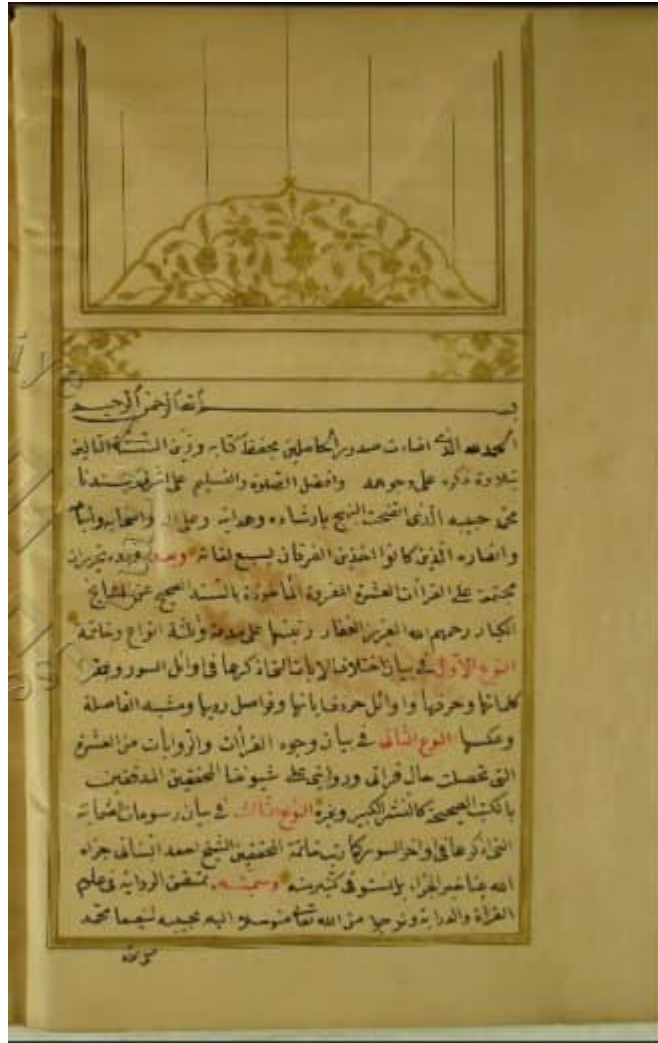 بسم الله الرحمن الرحيم
الحمد لله الذى اضاءت صدور الحاملين بحفظ كتابه وزين السنة التالين
بتلاوة ذكره على وجوهه وافضل الصلوة والتسليم على اشرف سيدنا
محمد حبيبه الذى اتضحت النهج بارشاده وهدايته وعلى اله واصحابه
وانصاره الذين كانوا اخذين الفرقان بسبع لغاته وبعد فهذه تحريرات
على القراآت العشرة المقروة المأخوذة بالسند الصحيح عن المشايخ
الكبار رحمهم الله العزيز الغفار رتبتها على مقدمة وثلثة انواع وخاتمة
النوع الاول فى بيان اختلاف الايات التى اذكرها فى اوائل السور
كلماتها وحرفها واوائل وفواصل رويها ومشبه الفاصلة
وعكسها النوع الثانى فى بيان وجوه القرأت والروايات من العشرة
التى تحصلت حال قرأتى وروايتى على شيوخنا المحققين المدققين
بالكتب الصحيحين كالنشر الكبير وغيره النوع الثالث فى بيان رسومات
التى اذكرها فى اواخر السور كما رتب خاتمة المحققين الشيخ احمد البنانى جزاه
الله عنا خير الجزاء وسميته الروايه فى علوم
القرأة والدراية ونرجوا من الله تعالى متوسلا اليه بحبيبه شفيعنا محمد
صلى الله